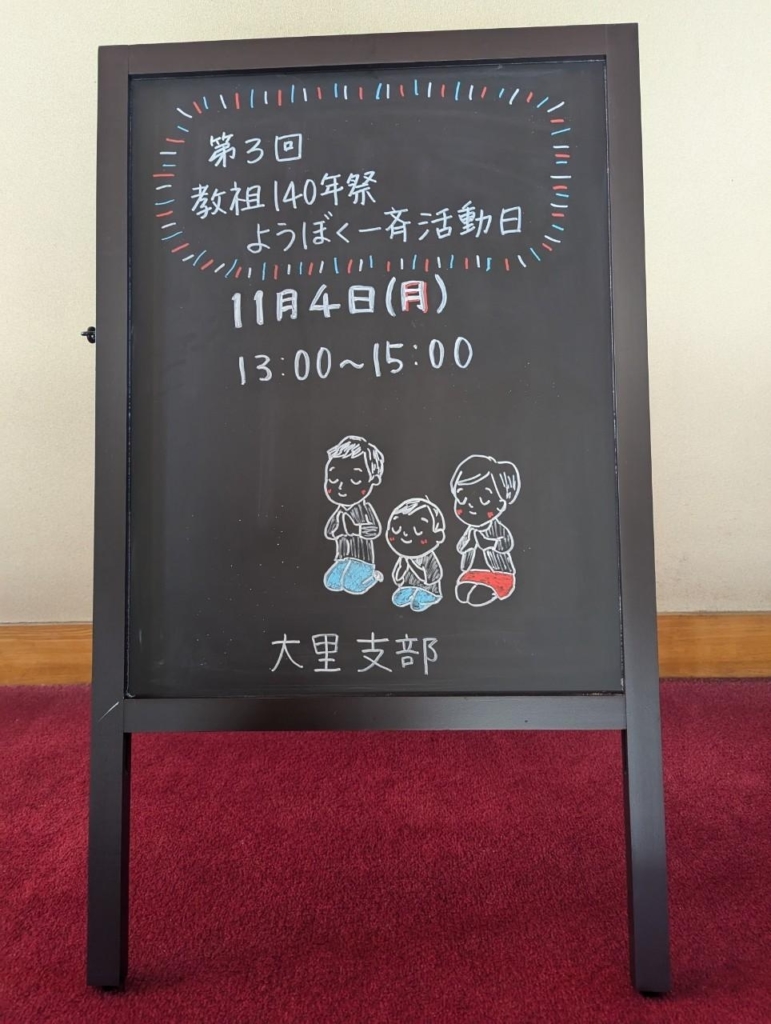 第3回
教祖140年祭
ようぼく一斉活動日
11月4日(月)
13:00～15:00
大里支部